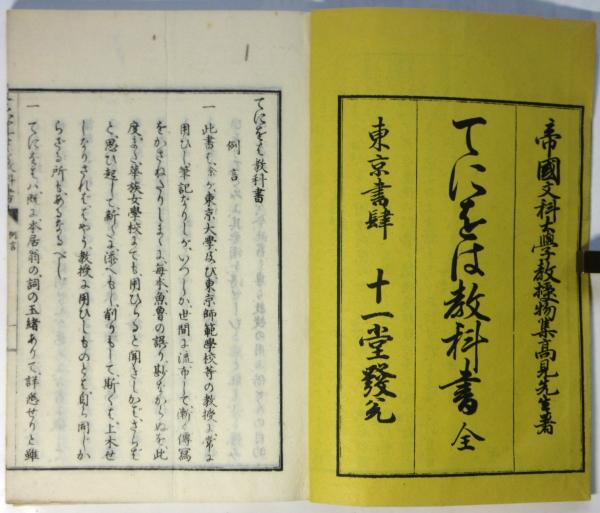 帝國文科大學教授物集高見先生著
てにをは教科書 全
東京書肆 十一堂發兌
てにをは教科書
例言
一 此書も、余が、東京大學、及び東京師範學校等の教授に、常に
用ひし筆記なりしが、いつしか、世間に流布して、漸く傳寫
をかさねたりしまゝに、毎本魚魯の誤り、尠なからぬを、此
度、また、華族女學校にても、用ひらると聞きしかば、さらば
と、思ひ起して、新くに、添へもし、削りもして、斯くも、上木せ
しなり、されど、もとやう、教授に用ひしものとも、自ら同じか
らざる所も、あるなるべし、
一 てにをはハ、既に、本居翁の、詞の玉緒ありて、詳悉せりと雖
例言